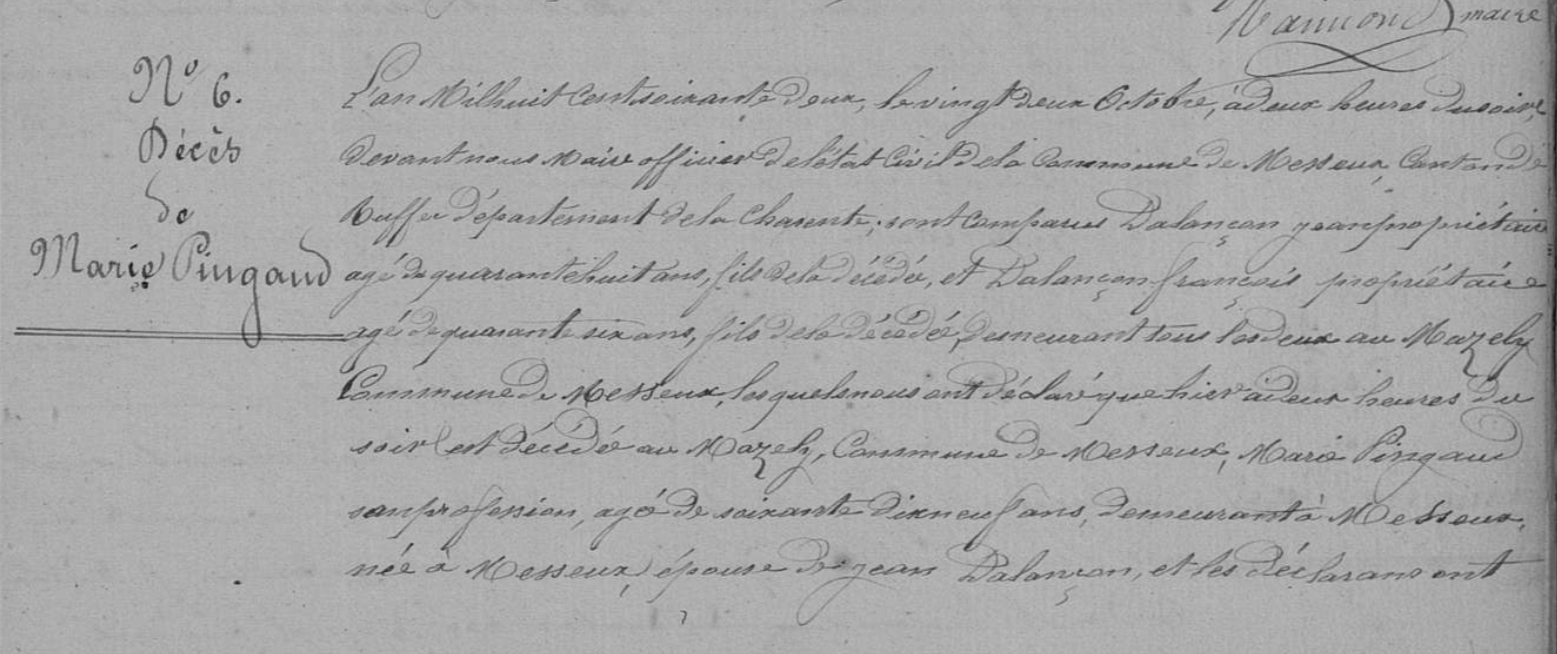 Raimond maire
N° 6.
Décès
de
Marie Pingaud
L'an Milhuit Cent soixante deux, le vingt deux Octobre, à deux heures du soir,
devant nous Maire officier de l'état Civil de la Commune de Messeux Canton de
Ruffec département de la Charente, sont comparus Dalançon jean propriétaire
agé de quarante huit ans, fils de la décédée, et Dalançon françois propriétaire
agé de quarante six ans, fils de la décédée, demeurant tous les deux au Mazely
Commune de Messeux, lesquels nous ont déclaré que hier à deux heures du
soir est décédée au Mazely, Commune de Messeux, Marie Pingaud
san profession, agé de soixante dix neuf ans, demeurant à Messeux,
née à Messeux, épouse de jean Dalançon, et les déclarans ont